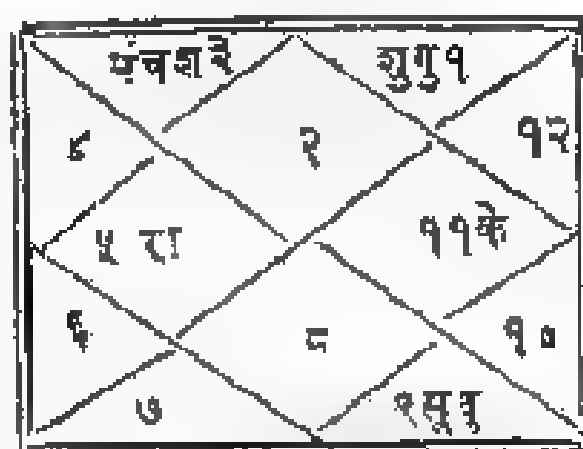 मंचश३ शुगु१
४ २ १२
५ रा ११के
६ ८ १०
७ ९सुबु